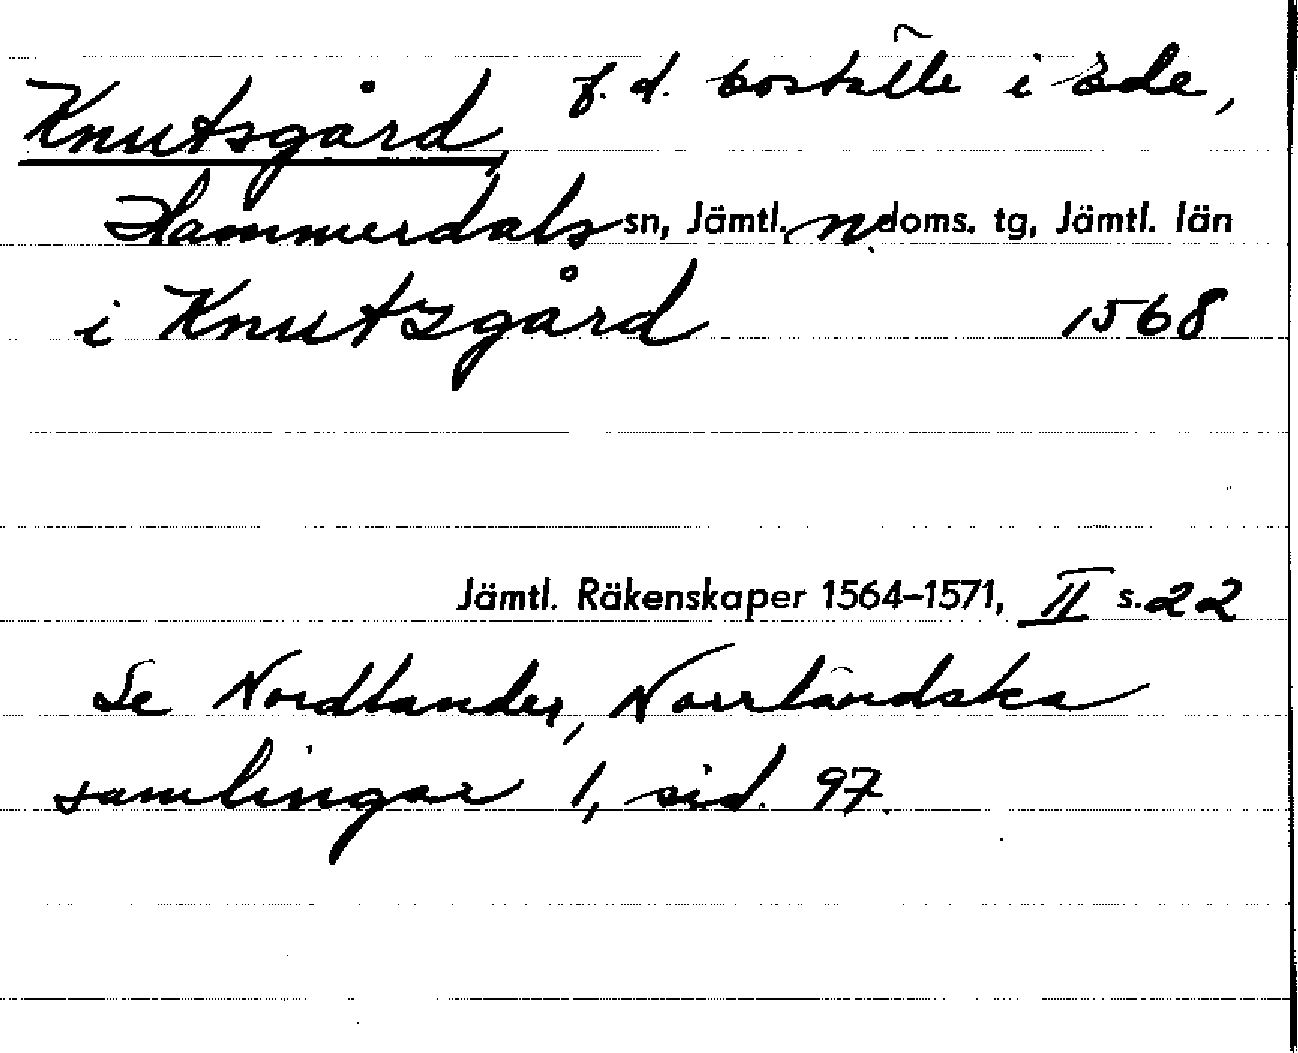 Knutsgård, f. d. boställe i Ede,
Hammerdals sn, Jämtl. n. doms. tg, Jämtl. län
i Knutzgård 1568
Jämtl. Räkenskaper 1564–1571, II s. 22
Se Nordlander, Norrländska
samlingar 1, sid. 97.